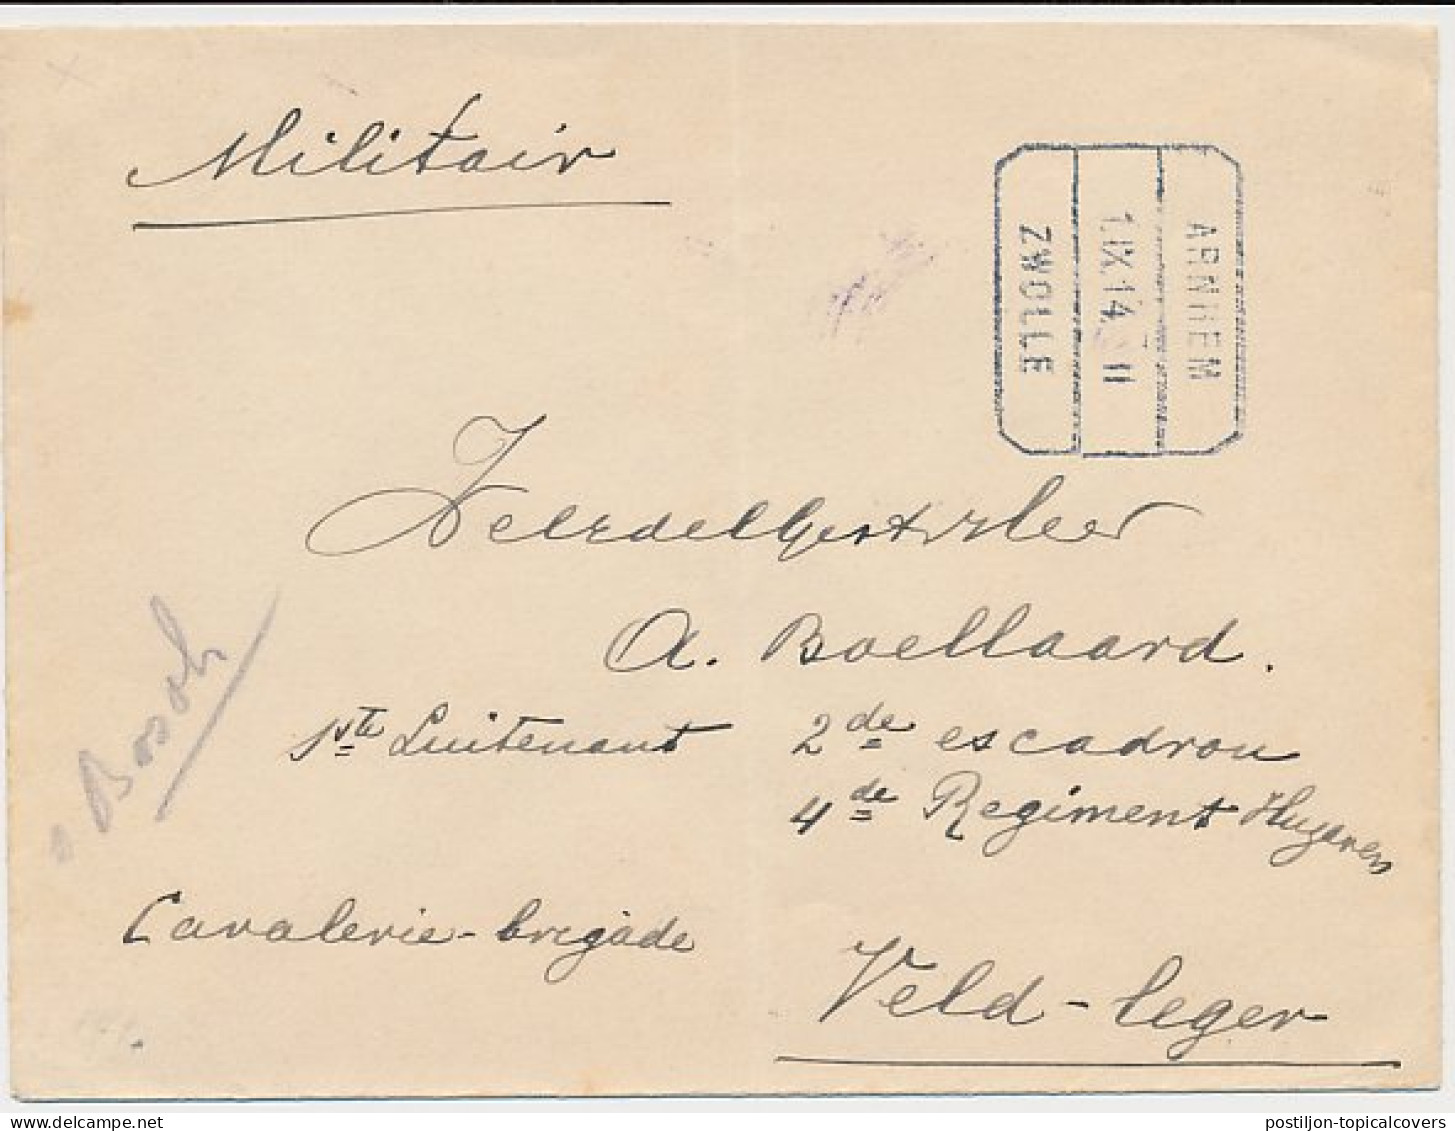 Militair
ARNHEM
1.IX.14. II
ZWOLLE
WelEdelGestr Heer
A. Boellaard.
1ste Luitenant 2de escadron
4de Regiment Huzaren
Bosch
Cavalerie-brigade
Veld-leger
postiljon-topicalcovers